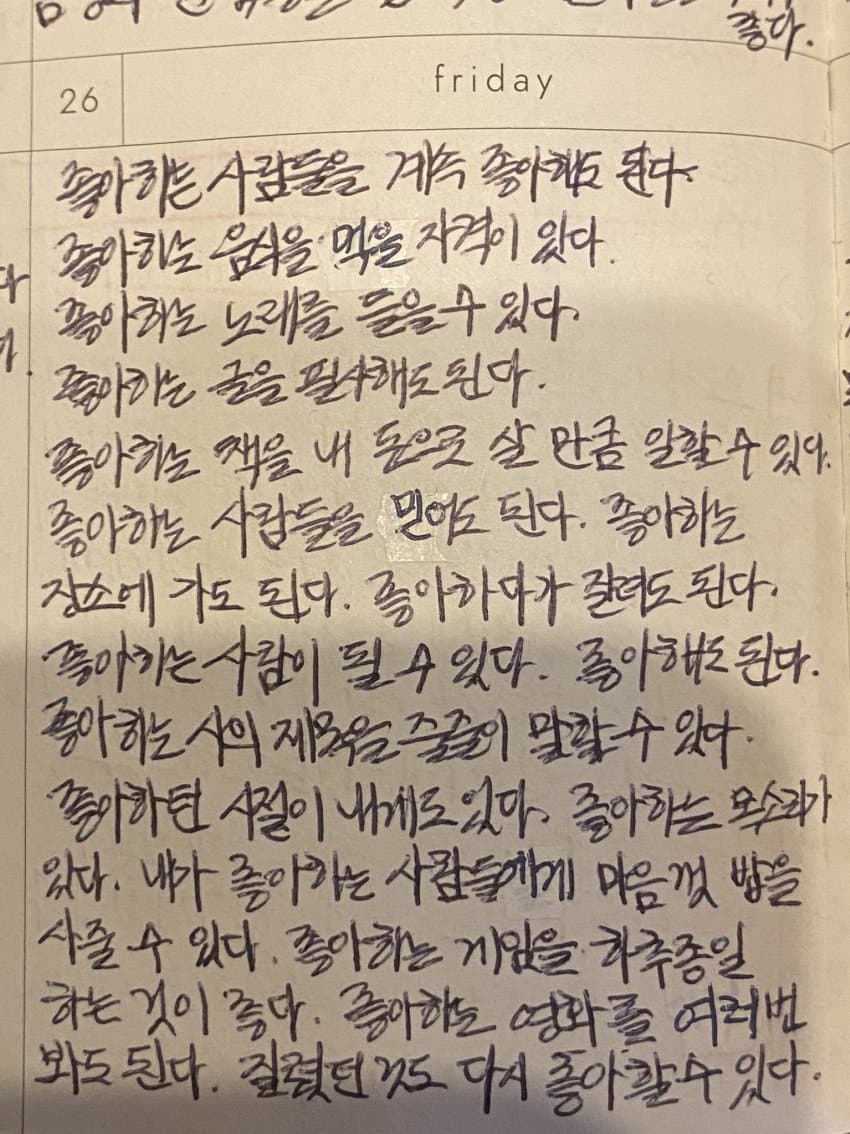 좋다.
26 friday
좋아하는 사람들을 계속 좋아해도 된다.
좋아하는 음식을 먹을 자격이 있다.
좋아하는 노래를 들을 수 있다.
좋아하는 글을 필사해도 된다.
좋아하는 책을 내 돈으로 살 만큼 일할 수 있다.
좋아하는 사람들을 믿어도 된다. 좋아하는
장소에 가도 된다. 좋아하다가 질려도 된다.
좋아하는 사람이 될 수 있다. 좋아해도 된다.
좋아하는 시의 제목을 줄줄이 말할 수 있다.
좋아하던 시절이 내게도 있다. 좋아하는 목소리가
있다. 내가 좋아하는 사람들에게 마음껏 밥을
사줄 수 있다. 좋아하는 게임을 하루종일
하는 것이 좋다. 좋아하는 영화를 여러번
봐도 된다. 질렸던 것도 다시 좋아할 수 있다.